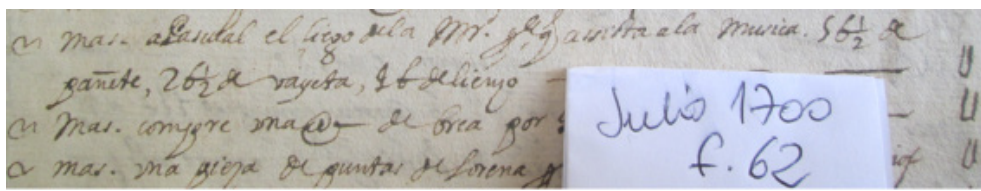 mas. a Pasqual el ciego de la Mr. pa q assista a la musica. 5 b½ de
pañete, 2 b½ de vayeta, 8 b de lienzo
mas. compre una @ de brea por
mas. una pieza de puntas de Lorena
Julio 1700
f. 62